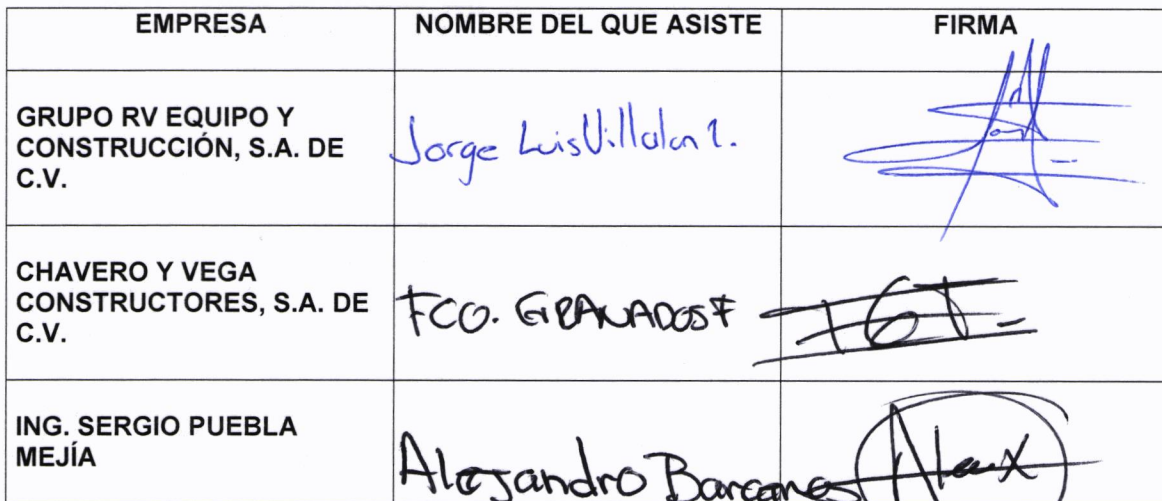 EMPRESA NOMBRE DEL QUE ASISTE FIRMA
GRUPO RV EQUIPO Y
CONSTRUCCIÓN, S.A. DE
C.V.
Jorge Luis Villalon
CHAVERO Y VEGA
CONSTRUCTORES, S.A. DE
C.V.
FCO. GRANADOS F
ING. SERGIO PUEBLA
MEJÍA
Alejandro